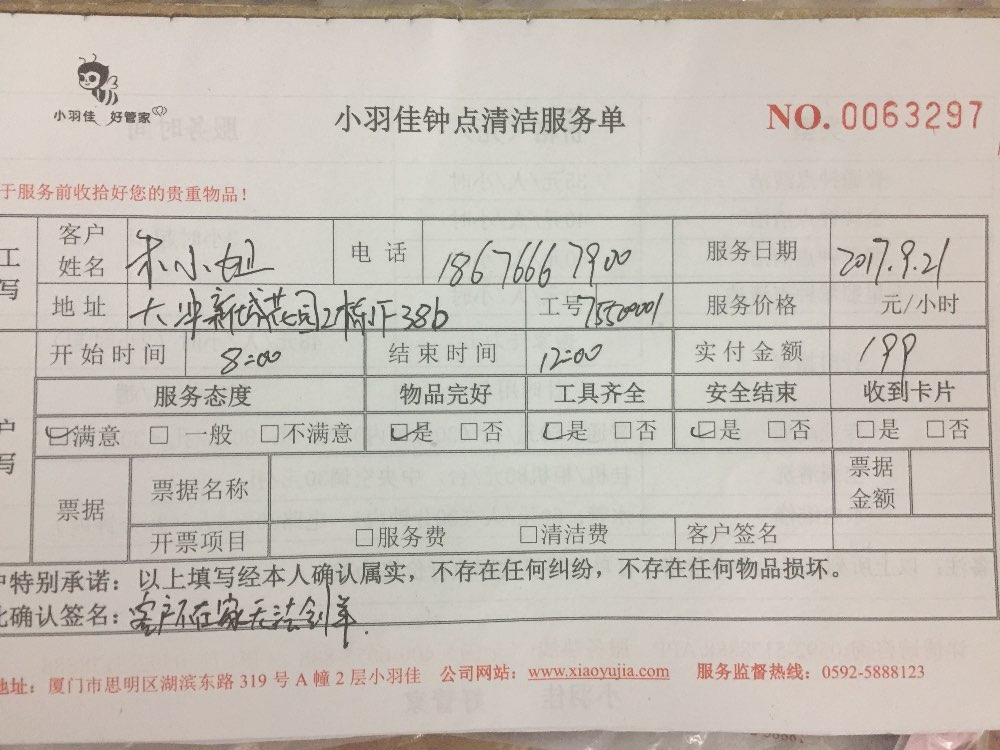 小羽佳 好管家
小羽佳钟点清洁服务单
NO. 0063297
于服务前收拾好您的贵重物品！
工 客户姓名 朱小姐 电话 18676667900 服务日期 2017.9.21
写 地址 大冲新城花园2栋 38b 工号 75500001 服务价格 元/小时
开始时间 8:00 结束时间 12:00 实付金额 199
服务态度 物品完好 工具齐全 安全结束 收到卡片
☑满意 □一般 □不满意 ☑是 □否 ☑是 □否 ☑是 □否 □是 □否
写 票据 票据名称 票据金额
开票项目 □服务费 □清洁费 客户签名
户特别承诺：以上填写经本人确认属实，不存在任何纠纷，不存在任何物品损坏。
此确认签名：客户不在家无法创单
地址：厦门市思明区湖滨东路 319 号 A 幢 2 层小羽佳 公司网站：www.xiaoyujia.com 服务监督热线：0592-5888123